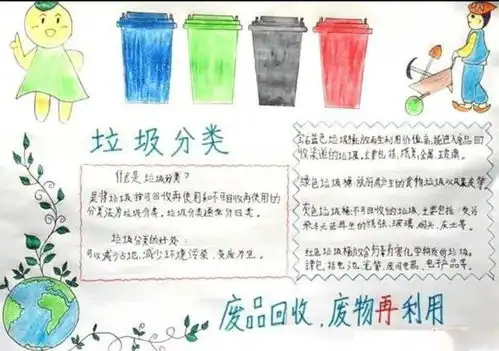 垃圾分类
什么是垃圾分类?
是将垃圾按可回收再使用和不可回收再使用的
分类法为垃圾分类。
垃圾分类的好处:
可以减少占地,减少环境污染、变废为宝。
蓝色垃圾桶放再生利用价值高,能进入废品回
收渠道的垃圾,主要包括:纸类、金属、玻璃。
绿色垃圾桶放厨房产生的食物垃圾以及果皮等
灰色垃圾桶:不可回收的垃圾,主要包括:受污
染的纸张、玻璃
红色垃圾桶放含有害有害化学物质的垃圾。
电池、电子产品等。
废品回收,废物再利用